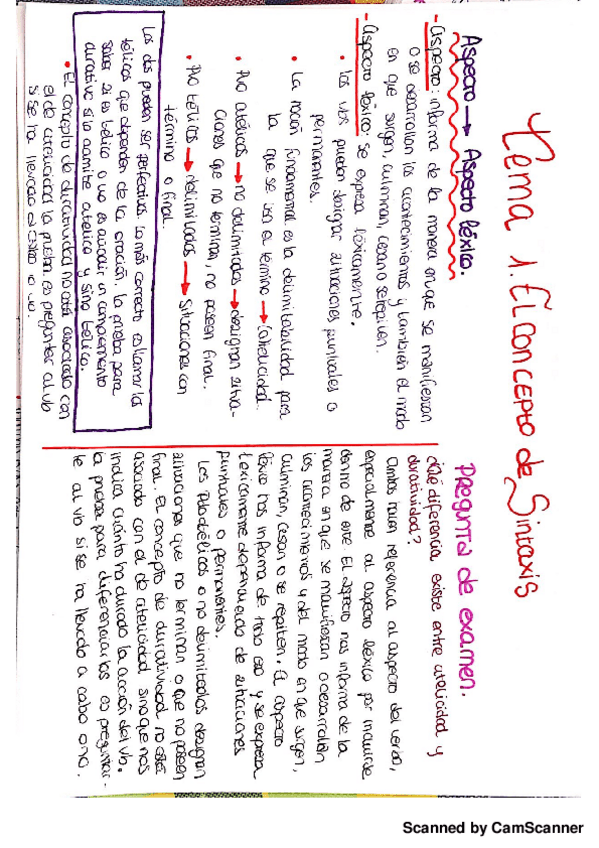 Tema 1. El concepto de Sintaxis
Aspecto → Aspecto léxico.
- Aspecto: informa de la manera en que se manifiestan
o se desarrollan los acontecimientos y también el modo
en que surgen, culminan, cesan o se repiten.
- Aspecto léxico: se expresa léxicamente.
• Los vbs pueden designar situaciones puntuales o
permanentes.
• La noción fundamental es la delimitabilidad para
la que se usa el término → (a)telicidad.
• PVO atélicos → no delimitados → designan situa-
ciones que no terminan, no poseen final.
• PVO télicos → delimitados → situaciones con
término o final.
Los dos pueden ser perfectivos. Lo más correcto es llamarlos
télicos que dependen de la oración. La prueba para
saber si es télico o no es añadir un complemento
durativo si lo admite atélico y sino télico.
• El concepto de duratividad no está asociado con
el de atelicidad la prueba es preguntar al vb
si se ha llevado a cabo o no.
Pregunta de examen.
¿Qué diferencia existe entre atelicidad y
duratividad?
Ambos hacen referencia al aspecto del verbo,
especialmente al aspecto léxico por incluirse
dentro de este. El aspecto nos informa de la
manera en que se manifiestan o desarrollan
los acontecimientos y del modo en que surgen,
culminan, cesan o se repiten. El aspecto
léxico nos informa de todo eso y se expresa
léxicamente dependiendo de situaciones
puntuales o permanentes.
Los atélicos o no delimitados designan
situaciones que no terminan o que no poseen
final. El concepto de duratividad no está
asociado con el de atelicidad sino que nos
indica cuánto ha durado la acción del vb.
la prueba para diferenciarlos es preguntar-
le al vb si se ha llevado a cabo o no.
Scanned by CamScanner